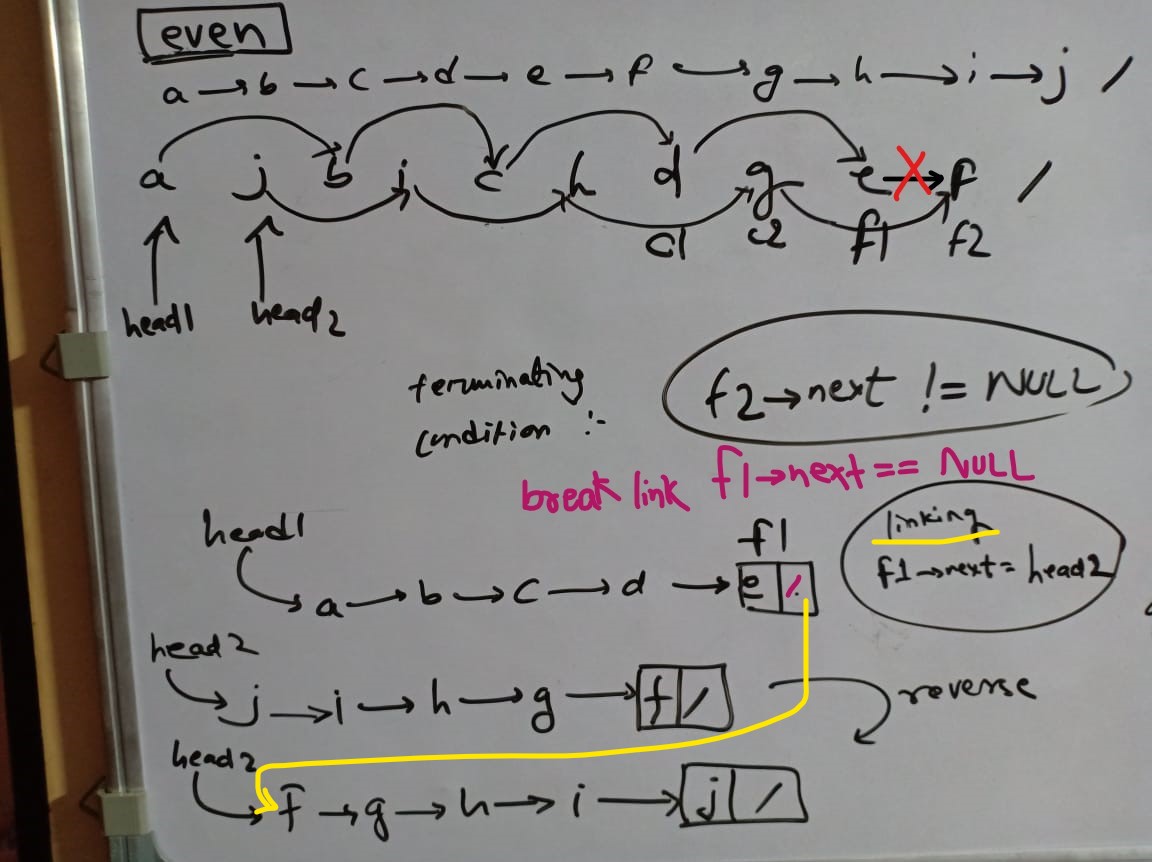 even
a → b → c → d → e → f → g → h → i → j /
a j b i c h d g e X → f /
c1 c2 f1 f2
head1 head2
terminating
condition :-
f2→next != NULL
break link f1→next == NULL
head1
f1
linking
f1→next = head2
a → b → c → d → e /
head2
j → i → h → g → f /
reverse
head2
f → g → h → i → j /